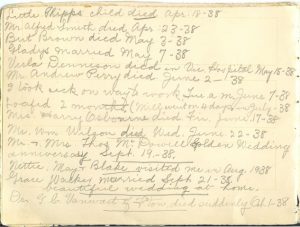 Little Phipps child died Apr. 18-38
Mr. Alfred Smith died Apr. 23-38
Burt Brown died May 3-38
Gladys married May 7-38
Verla Dennieson died in Vic. Hospital May 15-38
Mr. Andrew Perry died June 2-'38
I took sick on way to work Tue a.m. June 7-38
Loafed 2 months (Mil went on 4 days in July-38
Mrs. Harry Osbourne died Fri. June 17-38
Mr. Wm. Wilson died Wed. June 22-38
Mr. & Mrs. Thos. Mc Dowell Golden Wedding
anniversary Sept. 19-38.
Nettie, May & Blake visited me in Aug. 1938
Grace Walker married Sept 21-38
beautiful wedding at home.
Rev. T. C. of Zion died suddenly Oct. 1-38